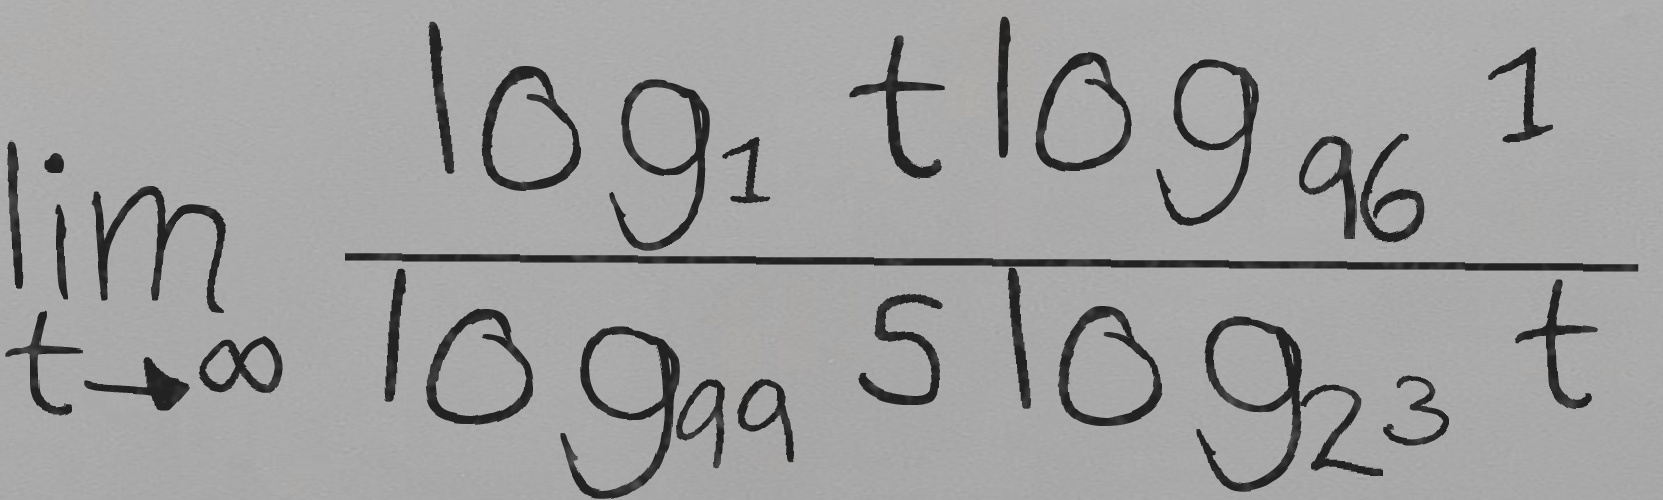 \lim_{t \to \infty} \frac{\log_{1} t \log_{96} 1}{\log_{99} 5 \log_{23} t}